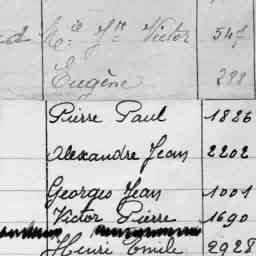 Victor 547
Eugène 288
Pierre Paul 1826
Alexandre Jean 2202
Georges Jean 1001
Victor Pierre 1690
Henri Emile 2928